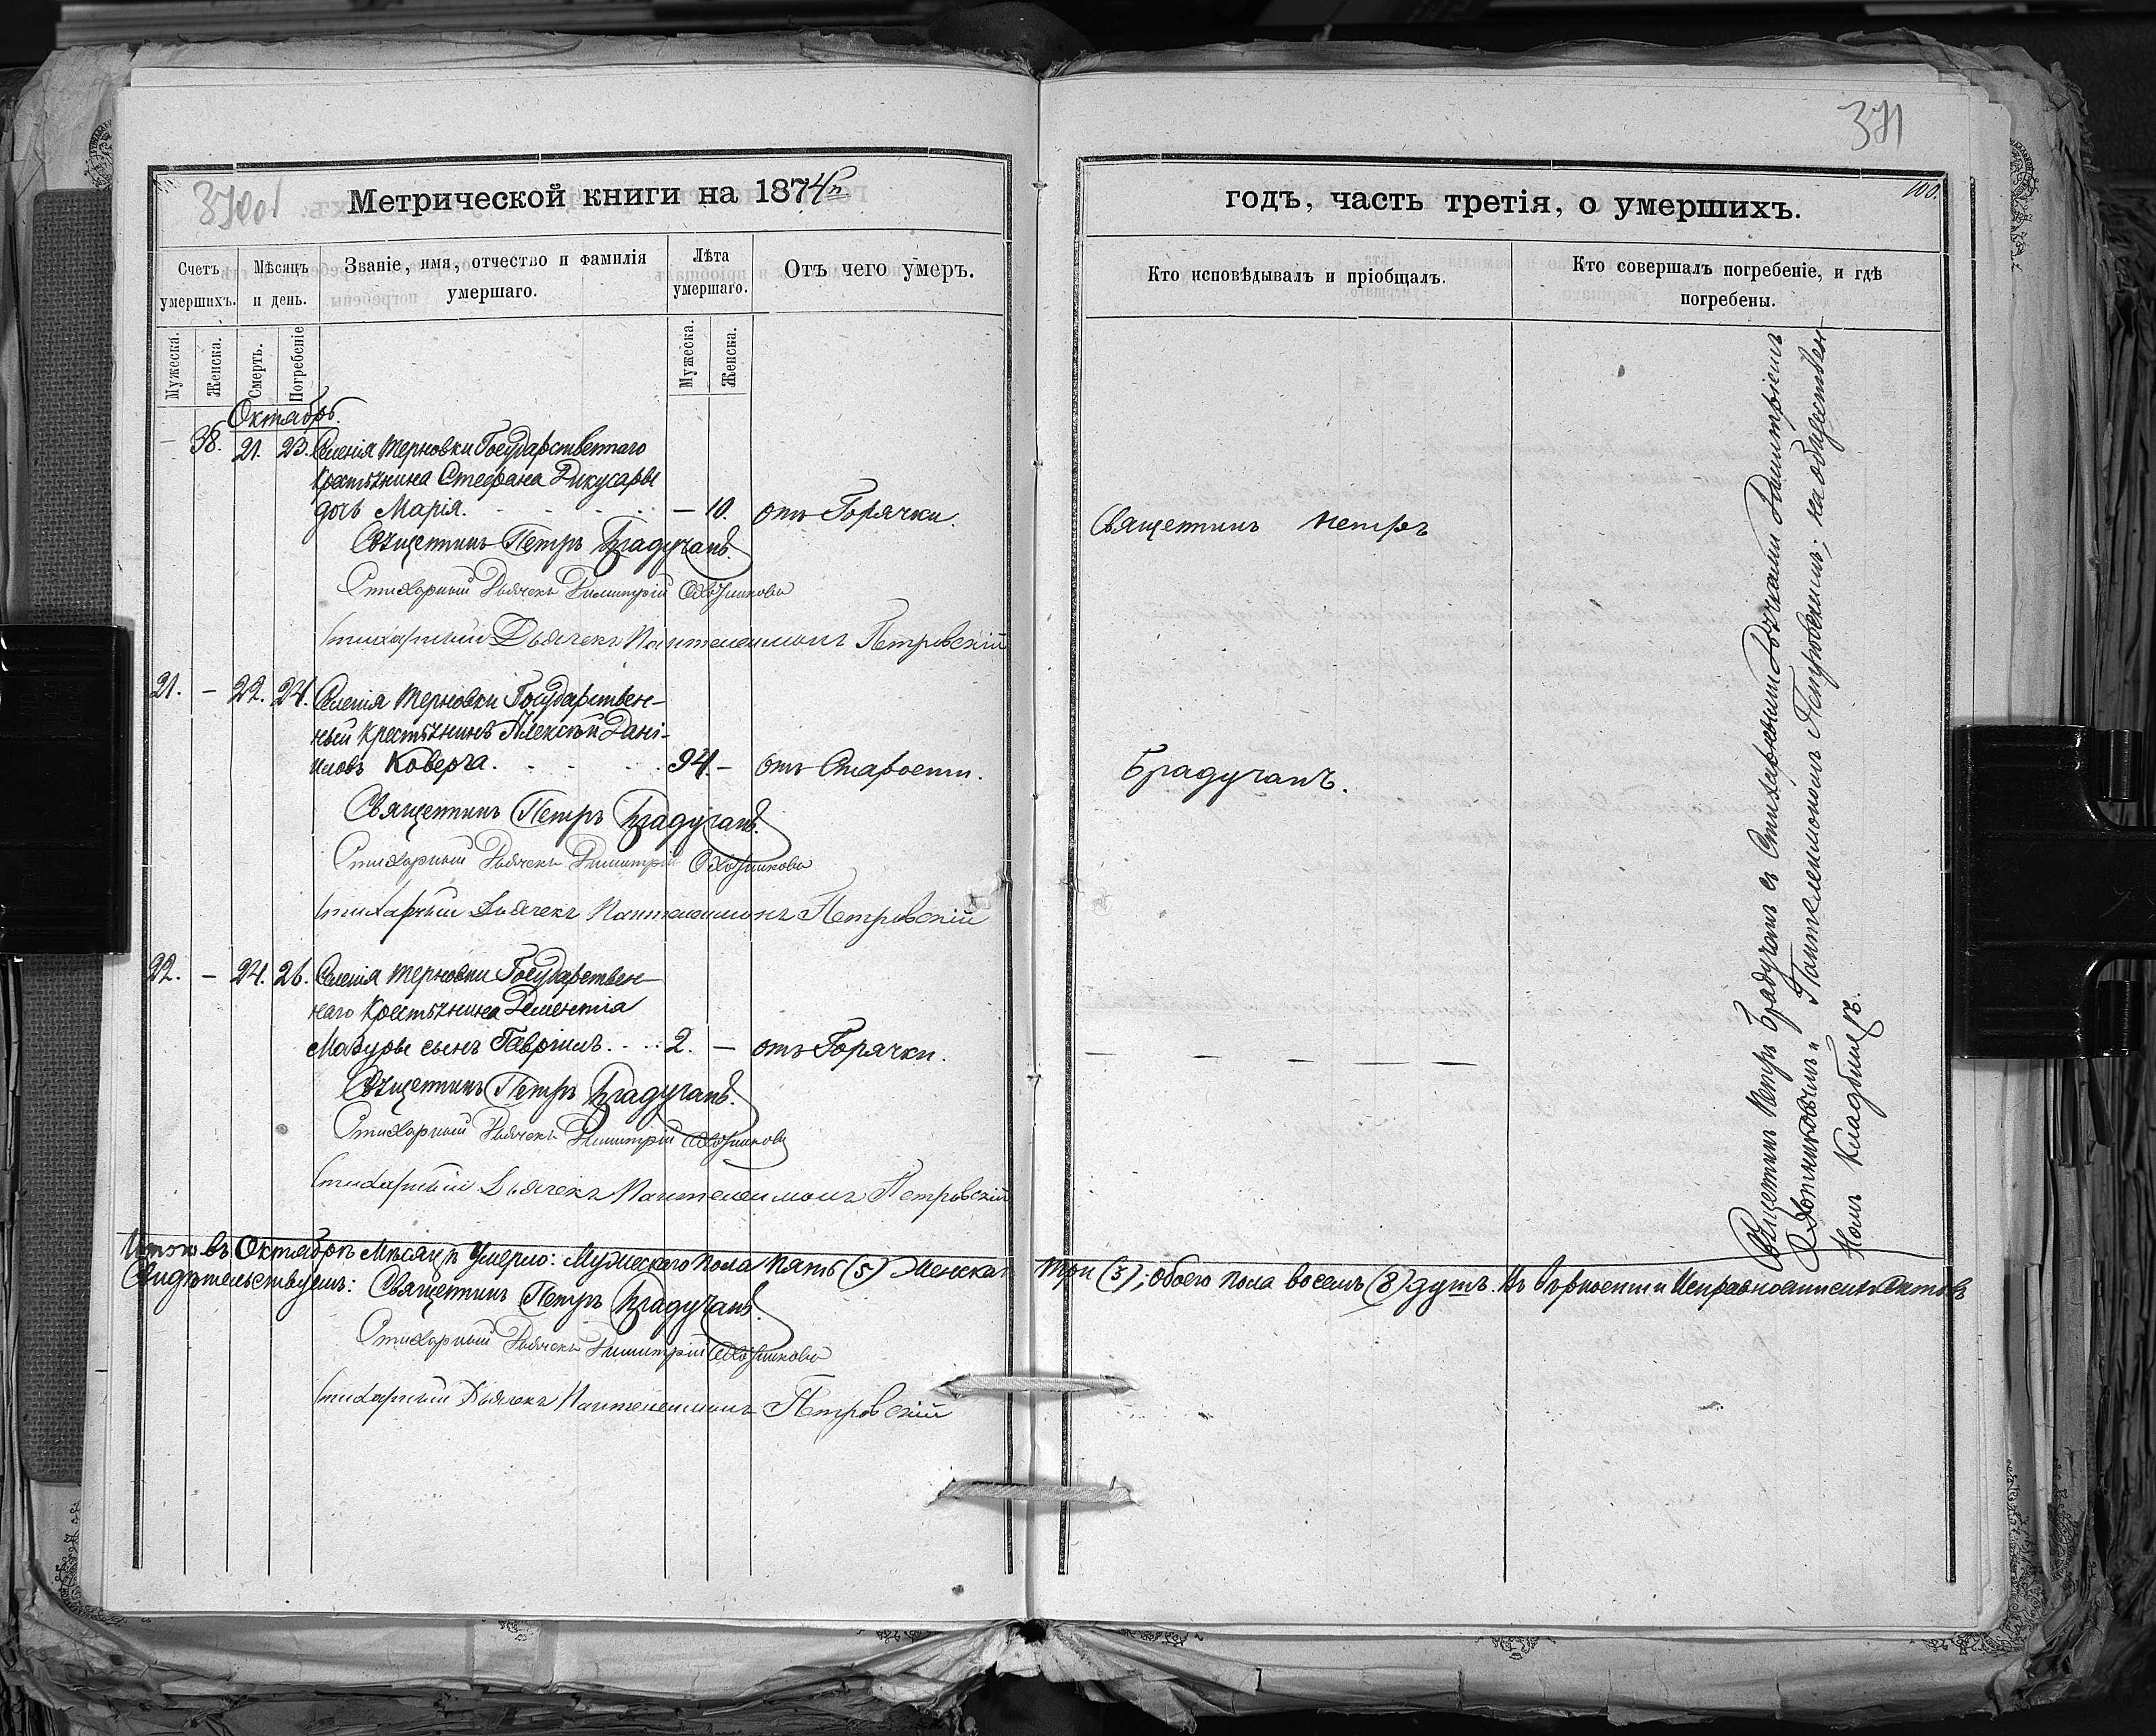 370об
Метрической книги на 1874й
Счетъ умершихъ.
Мѣсяцъ и день.
Званіе, имя, отчество и фамилія умершаго.
Лѣта умершаго.
Отъ чего умеръ.
Мужеска.
Женска.
Смерть.
Погребеніе
Мужеска.
Женска.
Октябрь.
— 38. 21. 23. Селенія Терновки Государственнаго
Крестьянина Стефана Дикусары
дочь Марія. — 10. отъ Горячки.
Священникъ Петръ Брадучанъ.
Стихарный Дьячекъ Димитрій Охотниковъ
Стихарный Дьячекъ Пантелеимонъ Петровскій
21. — 22. 24. Селенія Терновки Государствен-
ный Крестьянинъ Алексѣй Дані-
иловъ Коверга. 94. — отъ Старости.
Священникъ Петръ Брадучанъ.
Стихарный Дьячекъ Димитрій Охотниковъ
Стихарный Дьячекъ Пантелеимонъ Петровскій
22. — 24. 26. Селенія Терновки Государствен-
наго Крестьянина Дементія
Мазуры сынъ Гавріилъ. 2. — отъ Горячки.
Священникъ Петръ Брадучанъ.
Стихарный Дьячекъ Димитрій Охотниковъ
Стихарный Дьячекъ Пантелеимонъ Петровскій
Итого въ Октябрѣ Мѣсяцѣ Умерло: Мужескаго пола пять (5) Женскаго
Свидѣтельствуемъ: Священникъ Петръ Брадучанъ.
Стихарный Дьячекъ Димитрій Охотниковъ
Стихарный Дьячекъ Пантелеимонъ Петровскій
371
100.
годъ, часть третія, о умершихъ.
Кто исповѣдывалъ и пріобщалъ.
Кто совершалъ погребеніе, и гдѣ погребены.
Священникъ Петръ
Брадучанъ.
— — — — —
Священникъ Петръ Брадучанъ съ Стихарными Дьячками Димитріемъ
Охотниковымъ и Пантелеимономъ Петровскимъ; на общественномъ Кладбищѣ.
три (3); обоего пола восемь (8) душъ. Въ вѣрности и исправности сихъ актовъ